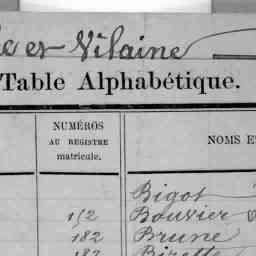 et Vilaine
Table Alphabétique.
NUMÉROS
AU REGISTRE
matricule.
NOMS ET
Bigot
152 Bouvier
182 Brune
187 Bizette